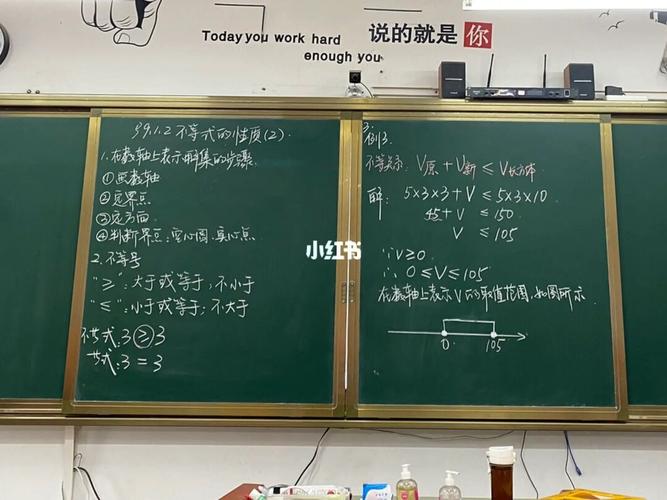 Today you work hard
enough you
说的就是你
§9.1.2 不等式的性质(2).
1.在数轴上表示解集的步骤
①画数轴
②定界点
③定方向
④判断界点:空心圆,实心点.
2.不等号
"≥":大于或等于,不小于
"≤":小于或等于,不大于
不等式:3≥3
等式:3=3
小红书
3.
例3.
不等关系: V原+V新≤V长方体
解: 5×3×3+V ≤ 5×3×10
45+V ≤ 150
V ≤ 105
∵V≥0
∴ 0≤V≤105
在数轴上表示V的取值范围,如图所示
0 105